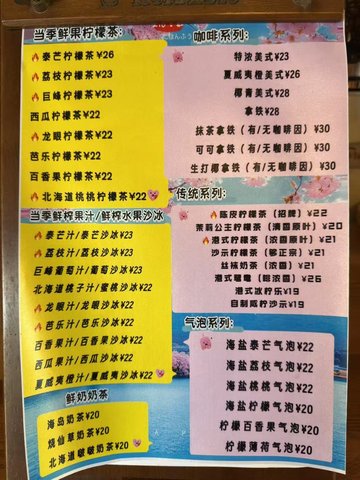 当季鲜果柠檬茶:
泰芒柠檬茶¥26
荔枝柠檬茶¥23
巨峰柠檬茶¥22
西瓜柠檬茶¥22
龙眼柠檬茶¥22
芭乐柠檬茶¥22
百香果柠檬茶¥22
北海道桃桃柠檬茶¥22
当季鲜榨果汁/鲜榨水果沙冰
泰芒汁/泰芒沙冰¥23
荔枝汁/荔枝沙冰¥23
巨峰葡萄汁/葡萄沙冰¥23
北海道桃子汁/蜜桃沙冰¥22
龙眼汁/龙眼沙冰¥22
芭乐汁/芭乐沙冰¥22
百香果汁/百香果沙冰¥22
西瓜果汁/西瓜沙冰¥22
夏威夷橙汁/夏威夷沙冰¥22
鲜奶奶茶
海岛奶茶¥20
烧仙草奶茶¥20
北海道啵啵奶茶¥20
咖啡系列:
特浓美式¥23
夏威夷橙美式¥26
椰青美式¥28
拿铁¥28
抹茶拿铁(有/无咖啡因)¥30
可可拿铁(有/无咖啡因)¥30
生打椰拿铁(有/无咖啡因)¥30
传统系列:
陈皮柠檬茶(招牌)¥22
茉莉公主柠檬茶(清香原叶)¥20
港式柠檬茶(浓香原叶)¥21
沙示柠檬茶(够正宗)¥21
丝袜奶茶(浓香)¥21
港式鸳鸯(超浓香)¥21
港式冰柠乐¥19
自制咸柠沙示¥19
气泡系列:
海盐泰芒气泡¥22
海盐荔枝气泡¥22
海盐桃桃气泡¥22
海盐柠檬气泡¥22
柠檬百香果气泡¥22
柠檬薄荷气泡¥22